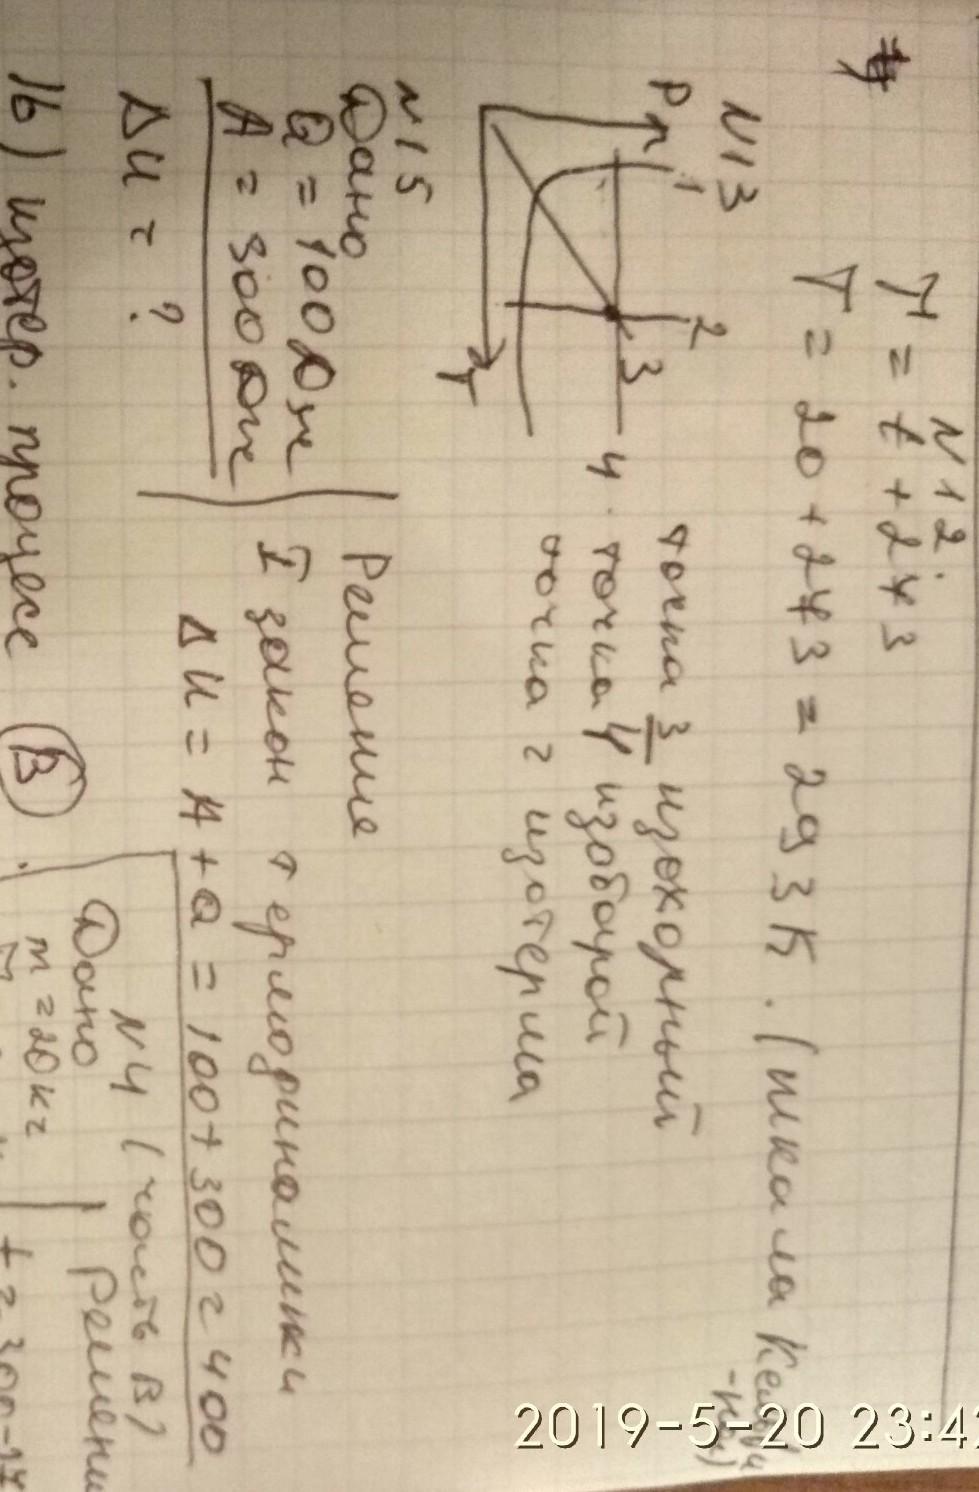 N12
T = t + 273
T = 20 + 273 = 293 К. (шкала Кельви
-на)
N13
P 1 2 3 4 T
точка 3 изохорный
точка 4 изобарой
точка 2 изотерма
N15
Дано
Q = 100 Дж
A = 300 Дж
ΔU = ?
Решение
I закон термодинамики
ΔU = A + Q = 100 + 300 = 400
16) изотер. процесс В
N4 (часть В)
Дано
m = 20 кг
Решени
2019-5-20 23:42